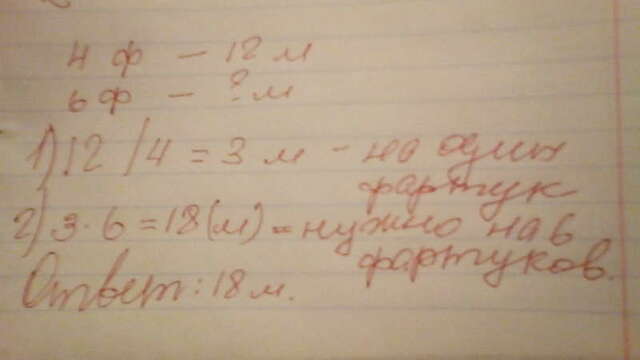 4 ф – 12 м
6 ф – ? м
1) 12 / 4 = 3 м – на один
фартук
2) 3 · 6 = 18 (м) – нужно на 6
фартуков.
Ответ: 18 м.